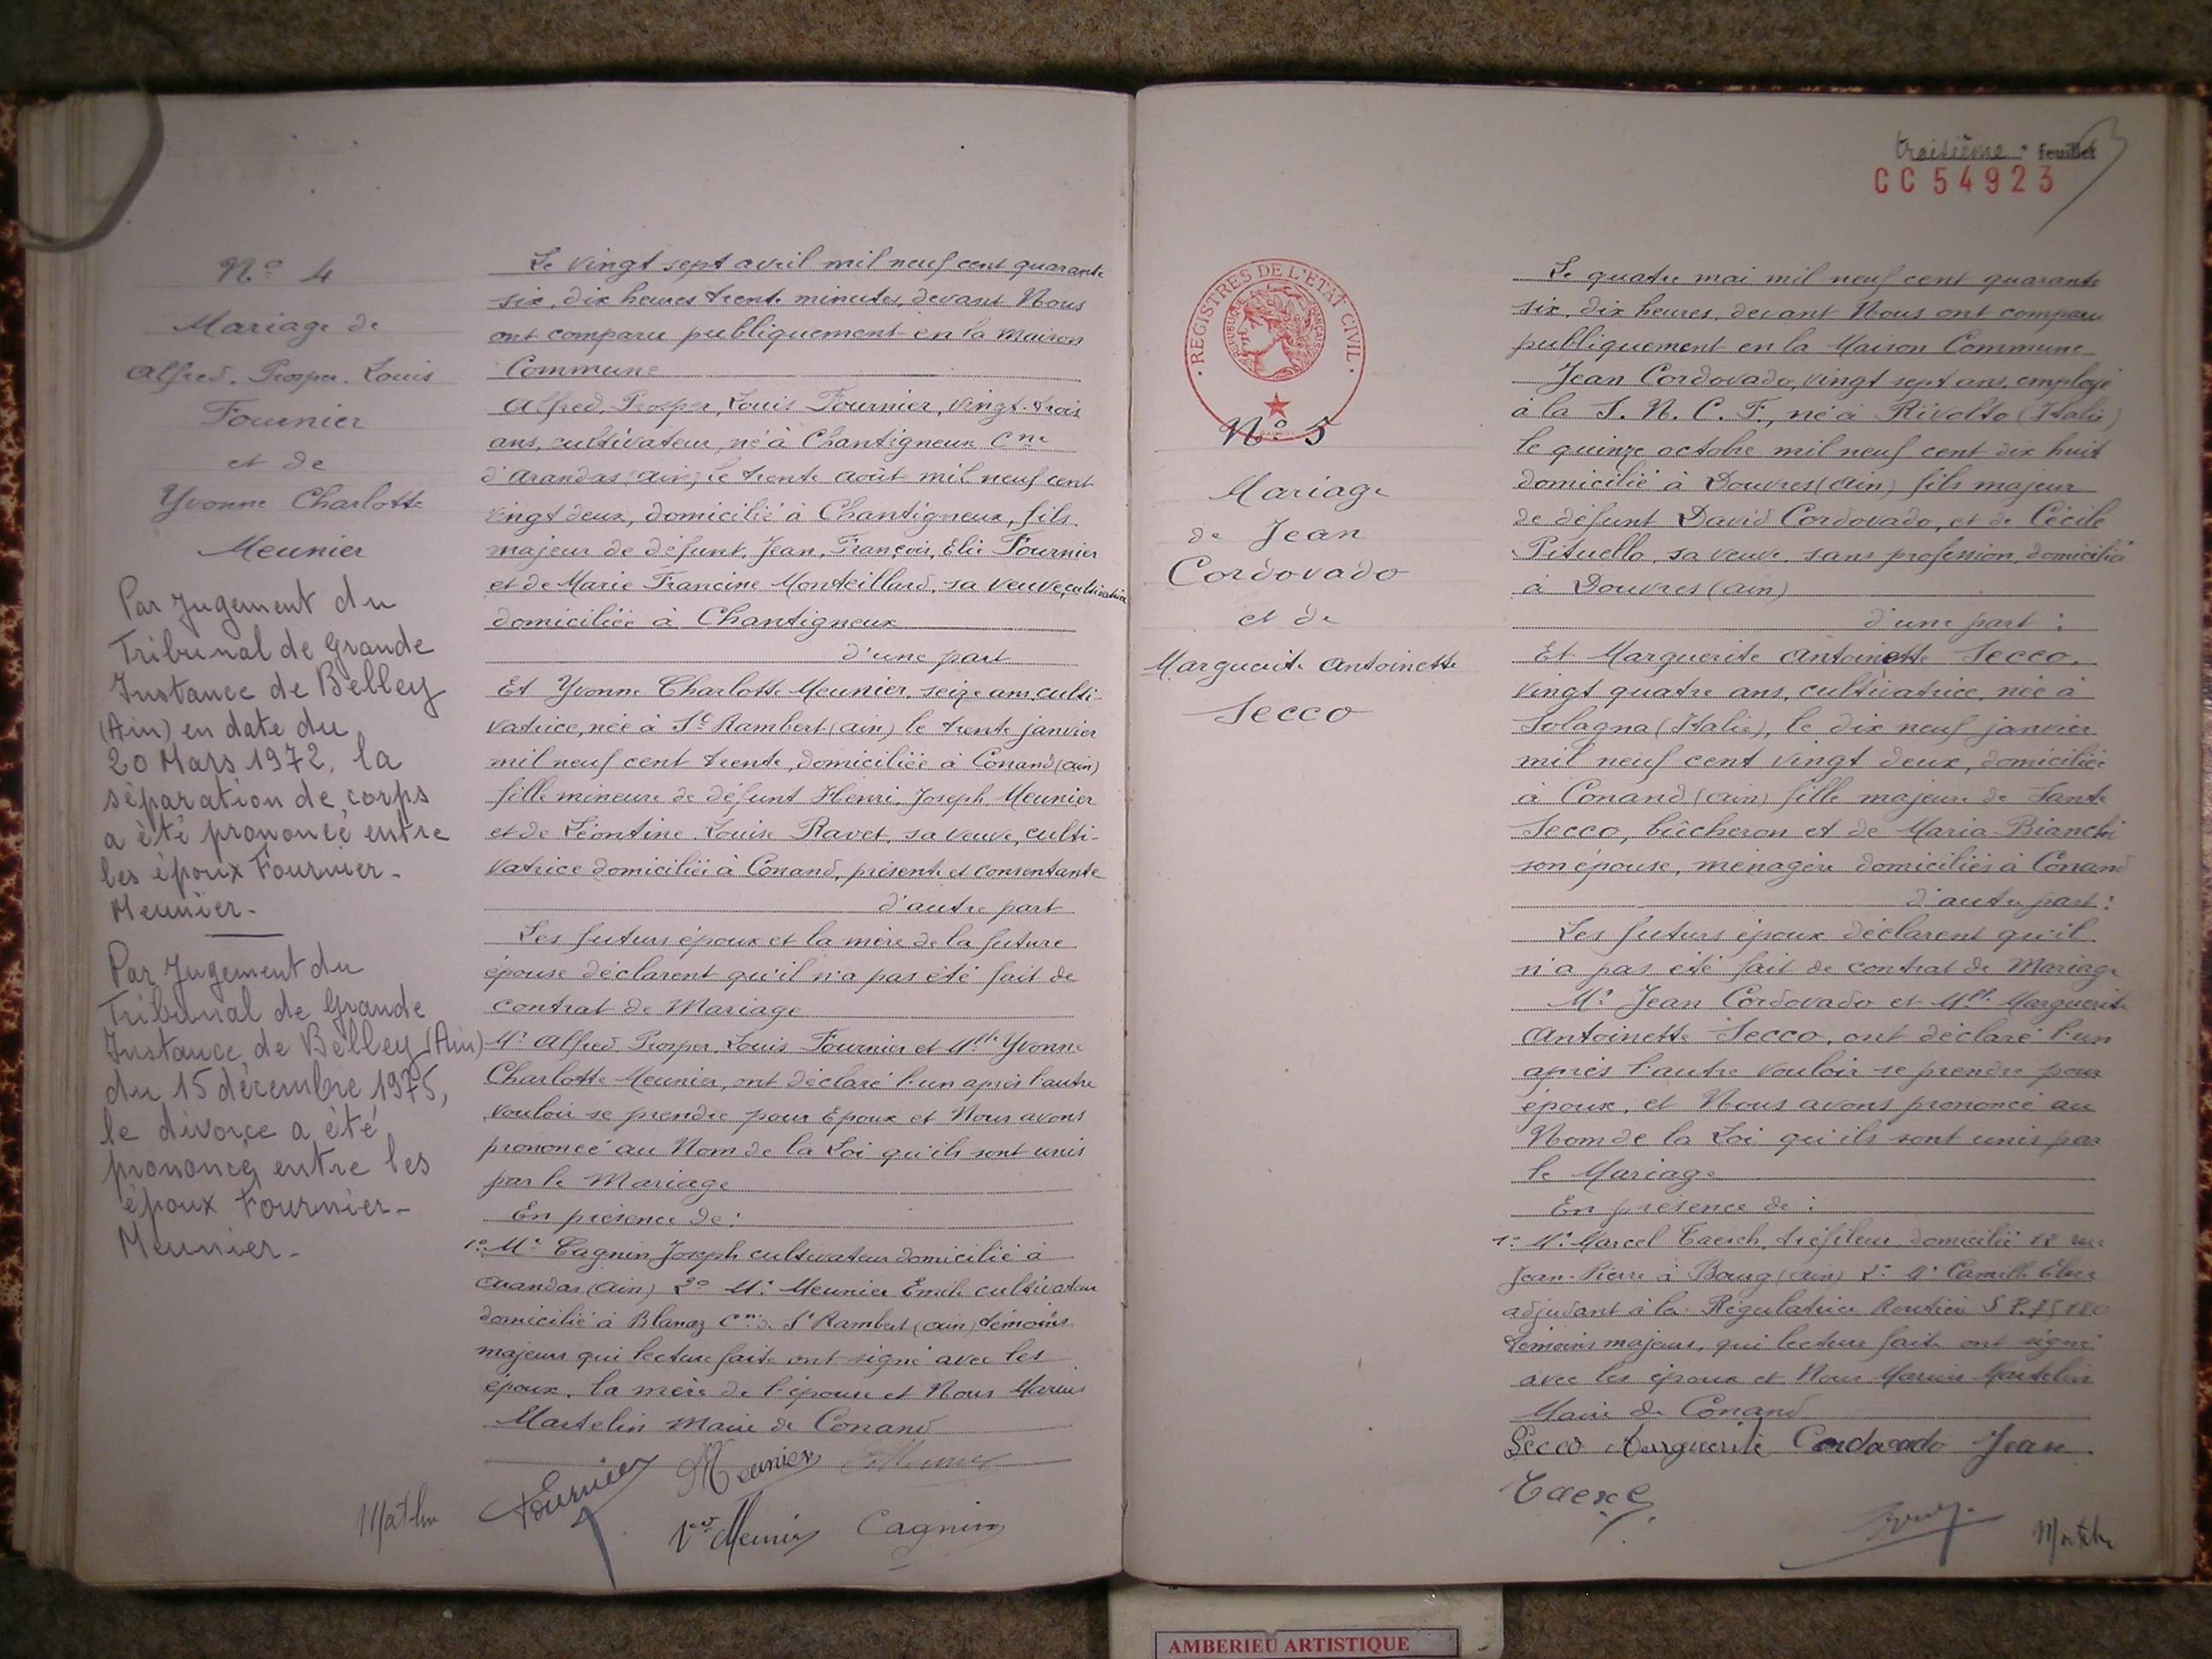 N° 4
Mariage de
Alfred. Prosper. Louis
Fournier
et de
Yvonne Charlotte
Meunier
Par Jugement du
Tribunal de Grande
Instance de Belley
(Ain) en date du
20 Mars 1972, la
séparation de corps
a été prononcé entre
les époux Fournier-
Meunier-
Par Jugement du
Tribunal de Grande
Instance de Belley (Ain)
du 15 décembre 1975,
le divorce a été
prononcé entre les
époux Fournier-
Meunier-
Le vingt sept avril mil neuf cent quarante
six, dix heures trente minutes, devant Nous
ont comparu publiquement en la maison
Commune
Alfred, Prosper, Louis Fournier, vingt-trois
ans, cultivateur, né à Chantigneux Cne
d'Arandas (Ain) le trente août mil neuf cent
vingt deux, domicilié à Chantigneux, fils
majeur de défunt, Jean, François, Elie Fournier
et de Marie Francine Monteillard, sa veuve, cultivatrice
domiciliée à Chantigneux
d'une part
Et Yvonne Charlotte Meunier, seize ans, culti-
vatrice, née à St Rambert (ain) le trente janvier
mil neuf cent trente, domiciliée à Conand (ain)
fille mineure de défunt Henri, Joseph Meunier
et de Léontine Louise Ravet, sa veuve, culti-
vatrice domiciliée à Conand, présente et consentante
d'autre part
Les futurs époux et la mère de la future
épouse déclarent qu'il n'a pas été fait de
contrat de Mariage
Mr Alfred Prosper, Louis Fournier et Mlle Yvonne
Charlotte Meunier, ont déclaré l'un après l'autre
vouloir se prendre pour Epoux et Nous avons
prononcé au Nom de la Loi qu'ils sont unis
par le Mariage
En présence de:
1° Mr Cagnin Joseph cultivateur domicilié à
Arandas (Ain) 2° Mr Meunier Emile cultivateur
domicilié à Blanaz Cne de St Rambert (ain) témoins
majeurs qui lecture faite ont signé avec les
époux, la mère de l'épouse et Nous Marius
Martelin Maire de Conand
Fournier Meunier
Vve Meunier Cagnin
troisième feuillet
CC 54923
· REGISTRES DE L'ÉTAT CIVIL ·
REPUBLIQUE FRANÇAISE
N° 5
Mariage
de Jean
Cordovado
et de
Marguerite Antoinette
Secco
Le quatre mai mil neuf cent quarante
six, dix heures, devant Nous ont comparu
publiquement en la Maison Commune
Jean Cordovado, vingt sept ans, employé
à la S. N. C. F., né à Rivolto (Italie)
le quinze octobre mil neuf cent dix huit
domicilié à Douvres (Ain) fils majeur
de défunt David Cordovado, et de Cécile
Pituello, sa veuve, sans profession, domiciliée
à Douvres (ain)
d'une part:
Et Marguerite Antoinette Secco,
vingt quatre ans, cultivatrice, née à
Solagna (Italie), le dix neuf janvier
mil neuf cent vingt deux, domiciliée
à Conand (ain) fille majeure de Sante
Secco, bûcheron et de Maria Bianchi
son épouse, ménagère domiciliés à Conand
d'autre part:
Les futurs époux déclarent qu'il
n'a pas été fait de contrat de Mariage
Mr Jean Cordovado et Mlle Marguerite
Antoinette Secco, ont déclaré l'un
après l'autre vouloir se prendre pour
époux, et Nous avons prononcé au
Nom de la Loi qu'ils sont unis par
le Mariage
En présence de:
1° Mr Marcel Caesch, tréfileur domicilié 12 rue
Jean-Pierre à Bourg (ain) 2° Mr Camille
adjudant à la Régulatrice Routière S P.
témoins majeurs, qui lecture faite ont signé
avec les époux et Nous Marius Martelin
Maire de Conand
Secco Marguerite Cordovado Jean
AMBERIEU ARTISTIQUE